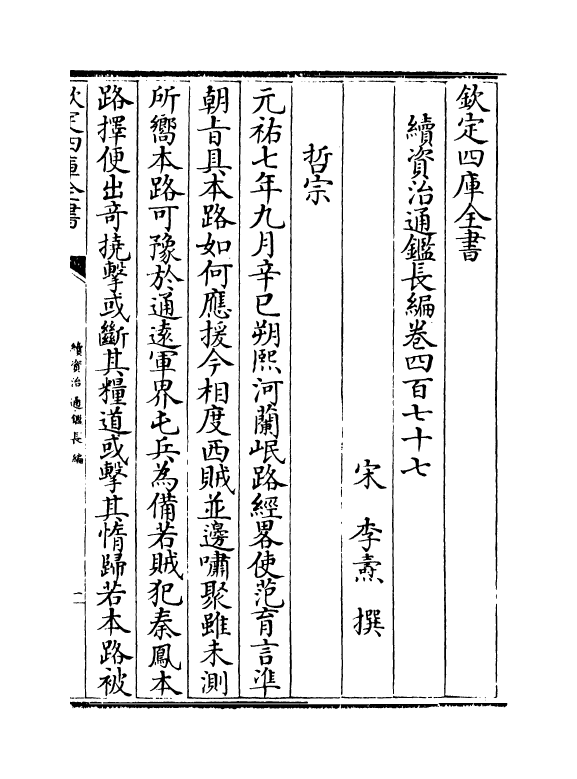 欽定四庫全書
續資治通鑑長編卷四百七十七
宋 李燾 撰
哲宗
元祐七年九月辛巳朔熙河蘭岷路經畧使范育言準
朝㫖具本路如何應援今相度西賊並邊嘯聚雖未測
所嚮本路可豫於通逺軍界屯兵為備若賊犯秦鳳本
路擇便出竒撓擊或斷其糧道或擊其惰歸若本路被
欽定四庫全書
續資治通鑑長編